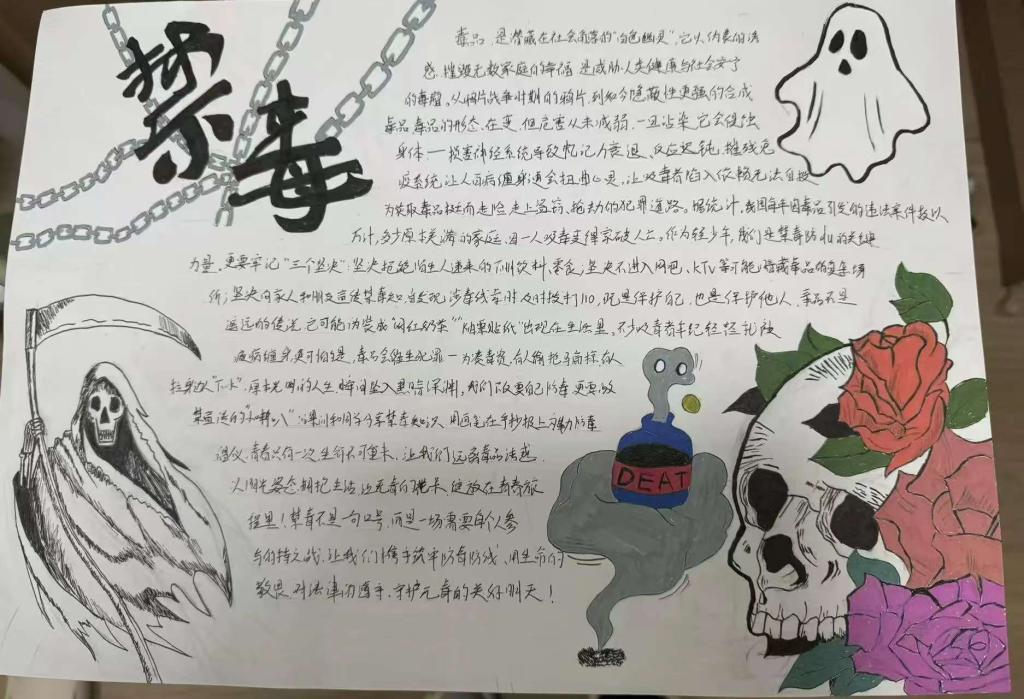 禁毒
毒品,是潜藏在社会角落的“白色幽灵”,它以伪装的诱
惑,摧毁无数家庭的幸福,是威胁人类健康与社会安宁
的毒瘤。从鸦片战争时期的鸦片,到如今隐蔽性更强的合成
毒品毒品的形态在变,但危害从未减弱,一旦沾染,它会侵蚀
身体一损害神经系统导致记忆力衰退、反应迟钝,摧残免
疫系统让人百病缠身更会扭曲心灵,让吸毒者陷入依赖无法自拔
为获取毒品铤而走险走上盗窃、抢劫的犯罪道路。据统计,我国每年因毒品引发的违法案件数以
万计,多少原本美满的家庭,因一人吸毒变得家破人亡。作为青少年,我们是禁毒防的关键
力量,更要牢记“三个坚决”:坚决拒绝陌生人递来的饮料、零食;坚决不进入网吧、KTV等可能藏毒品的复杂场
所;坚决向家人和朋友宣传禁毒知,发现涉毒线索时及时拨打110,既是保护自己,也是保护他人,毒品不是
遥远的传说,它可能伪装成“网红奶茶”“贴纸”出现在生活里。不少吸毒者年纪轻轻就
疾病缠身更可怕是,毒品会催生犯罪一为凑毒资,有人偷抢
原本光明的人生瞬间坠入黑暗深渊,我们不仅要自己防毒更要做
禁毒宣传的和同学分享禁毒知识,用画笔在手抄报上防毒
青春只有一次生命不可重来,让我们远离毒品诱惑,
以阳光姿态拥抱生活,让无毒的绽放在青春旅
程里!禁毒不是一句口号,而是一场需要每个人参
与的持久战,让我们携手筑牢防毒防线,用生命的
敬畏,对法律的遵守,守护无毒的美好明天!
DEAT